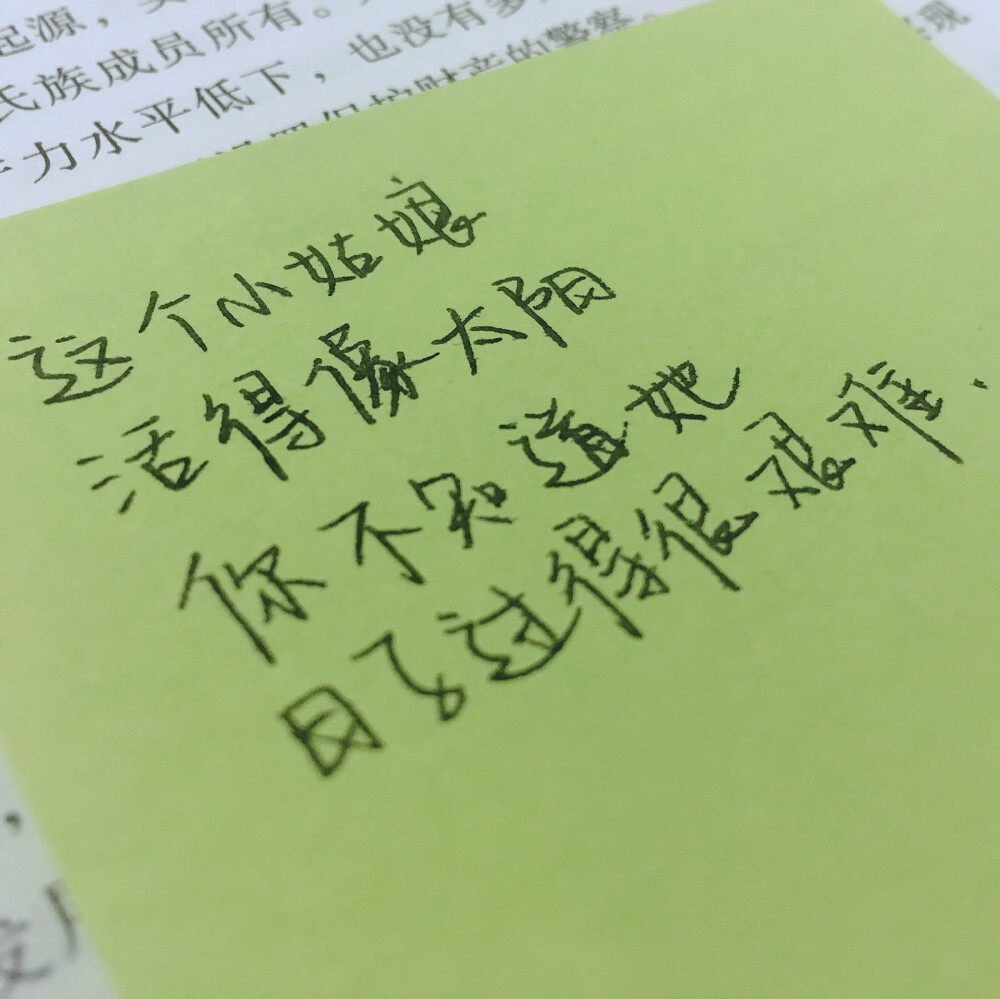 起源，
氏族成员所有。
力水平低下，也没有多
保护财产的警察。
现
这个小姑娘
活得像太阳
你不知道她
日子过得很艰难.
，